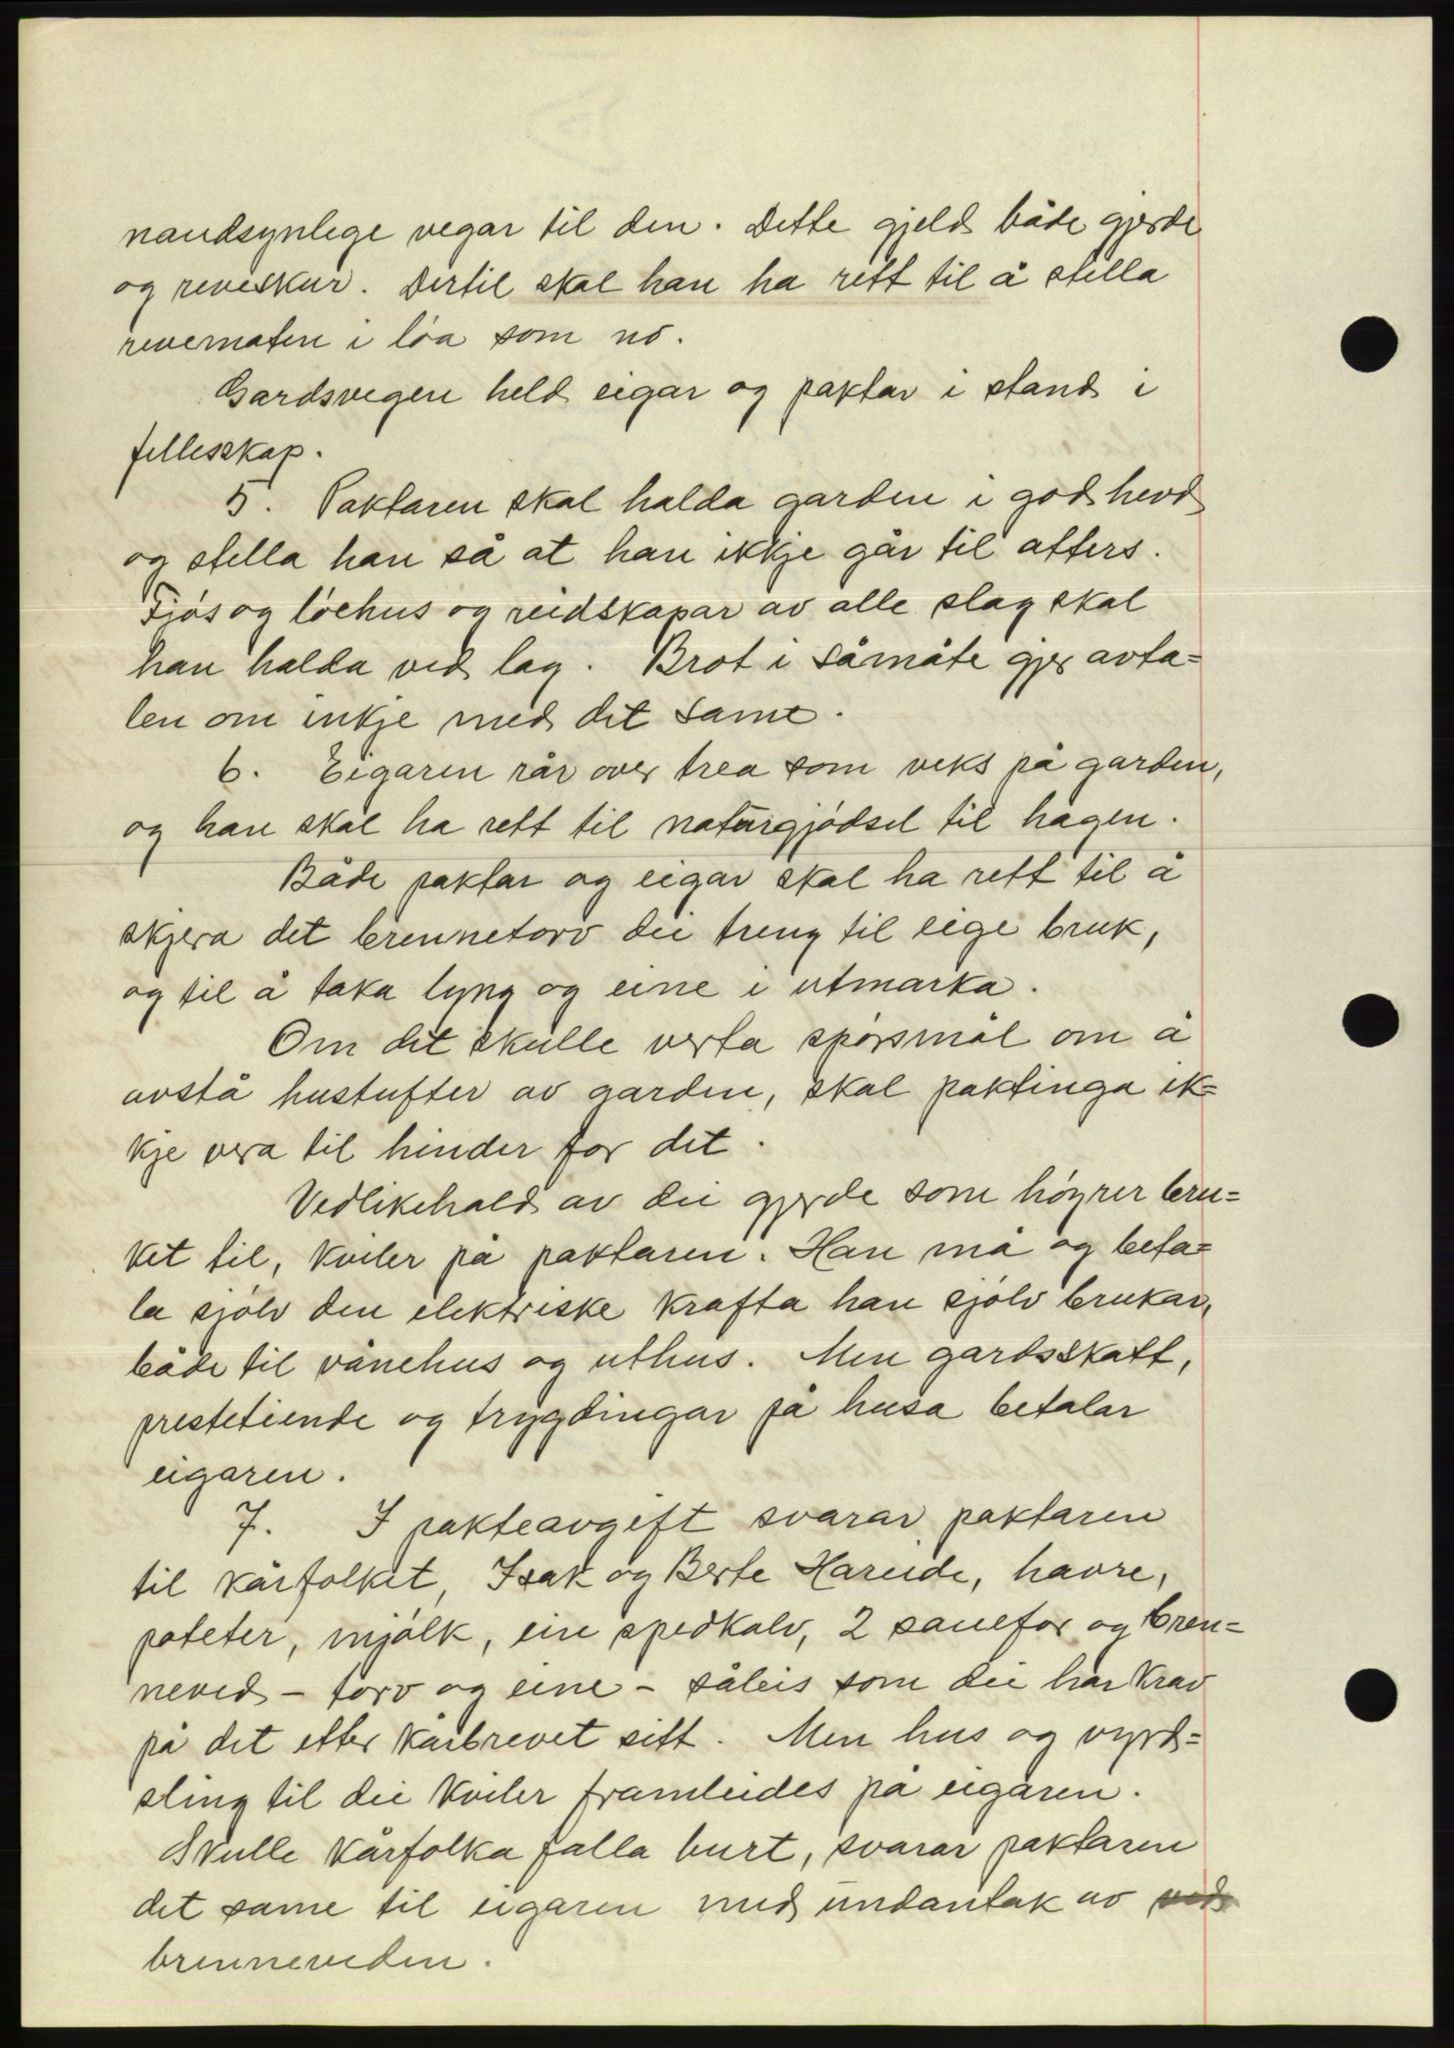 naudsynlege vegar til den. Dette gjeld både gjerde
og reveskur. Dertil skal han ha rett til å stella
revematen i lóa som no.
Gardsvegen held eigar og paktar i stand i
fellesskap.
5. Paktaren skal halda garden i god hevd
og stella han så at han ikkje går til atters.
Fjós og lóehus og reidskapar av alle slag skal
han halda ved lag. Brot i såmåte gjer avta=
len om inkje med det same.
6. Eigaren rår over trea som veks på garden,
og han skal ha rett til naturgjódsel til hagen.
Både paktar og eigar skal ha rett til å
skjera det brennetorv dei treng til eige bruk,
og til å taka lyng og eine i utmarka.
Om det skulle verta spórsmål om å
avstå hustufter av garden, skal paktinga ik=
kje vera til hinder for det.
Vedlikehald av dei gjerde som hóyrer bru=
ket til, kviler på paktaren. Han må og beta=
la sjólv den elektriske krafta han sjólv brukar,
både til vånehus og uthus. Men gardsskatt,
prestetiende og trygdingar på husa betalar
eigaren.
7. I pakteavgift svarar paktaren
til kårfolket, Isak og Berte Hareide, havre,
poteter, mjólk, ein spedkalv, 2 sauefor og bren=
neved - torv og eine - såleis som dei har krav
på det etter kårbrevet sitt. Men hus og vyrd=
sling til dei kviler framleides på eigaren.
Skulle kårfolka falla burt, svarar paktaren
det same til eigaren med undantak av ved
brenneveden.